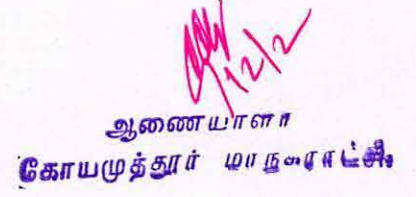 12/2
ஆணையாளர்
கோயமுத்தூர் மாநகராட்சி